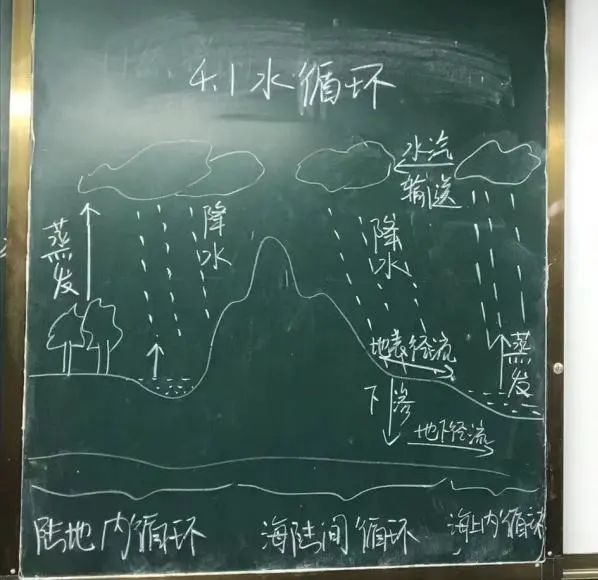 4.1水循环
水汽
输送
降水
降水
蒸发
地表径流
蒸发
下渗
地下径流
陆地内循环
海陆间循环
海上内循环